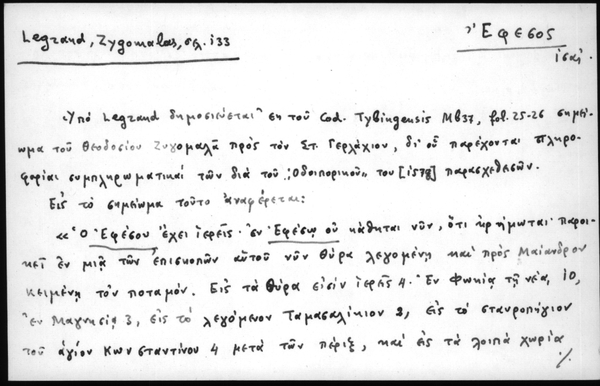 Legrand, Zygomalas, σελ. 133
Ἔφεσος
Ὑπό Legrand δημοσιεύεται ἐκ τοῦ Cod. Tybingensis Mb37, fol. 25-26 σημεί-
ωμα τοῦ Θεοδοσίου Ζυγομαλᾶ πρὸς τὸν Στ. Γερλάχιον, δι' οὗ παρέχονται πληρο-
φορίαι συμπληρωματικαί τῶν διά τοῦ „Ὁδοιπορικοῦ" του [1578] παρασχεθεισῶν.
Εἰς τὸ σημείωμα τοῦτο ἀναφέρεται:
« Ὁ Ἐφέσου ἔχει ἱερεῖς· ἐν Ἐφέσῳ οὐ κάθηται νῦν, ὅτι ἠρήμωται· παροι-
κεῖ ἐν μιᾷ τῶν ἐπισκοπῶν αὐτοῦ νῦν Θύρα λεγομένῃ καὶ πρὸς Μαίανδρον
κειμένῃ τὸν ποταμόν. Εἰς τὰ Θύρα εἰσίν ἱερῆς 4. Ἐν Φωκίᾳ τῇ νέᾳ, 10,
ἐν Μαγνησίᾳ 3, εἰς τὸ λεγόμενον Ταμασαλίκιον 2, εἰς τὸ σταυροπήγιον
τοῦ ἁγίου Κωνσταντίνου 4 μετά τῶν πέριξ, καὶ εἰς τὰ λοιπά χωρία
./.